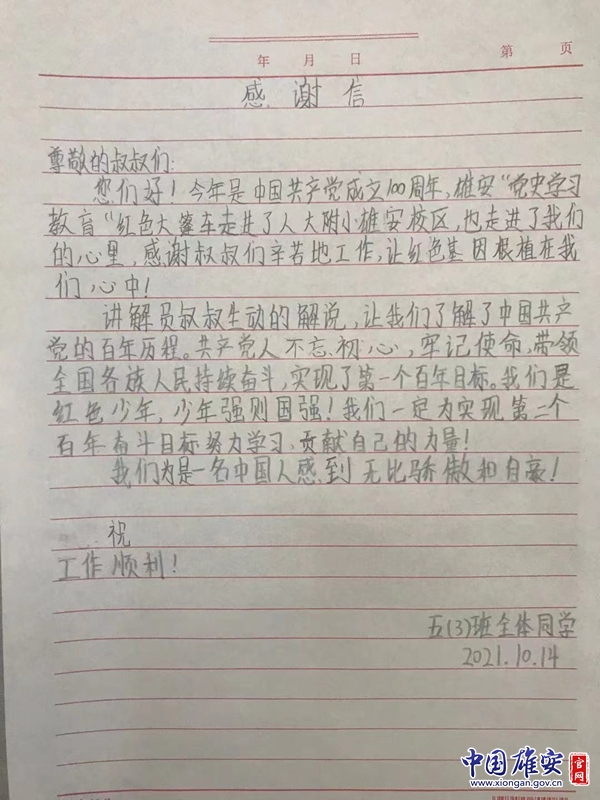 年 月 日 第 页
感谢信
尊敬的叔叔们:
您们好!今年是中国共产党成立100周年,雄安“党史学习
教育“红色大篷车走进了人大附小雄安校区,也走进了我们
的心里,感谢叔叔们辛苦地工作,让红色基因根植在我
们心中!
讲解员叔叔生动的解说,让我们了解了中国共产
党的百年历程。共产党人不忘初心,牢记使命,带领
全国各族人民持续奋斗,实现了第一个百年目标。我们是
红色少年,少年强则国强!我们一定为实现第二个
百年奋斗目标努力学习,贡献自己的力量!
我们为是一名中国人感到无比骄傲和自豪!
祝
工作顺利!
五(3)班全体同学
2021.10.14
中国雄安 官网
www.xiongan.gov.cn